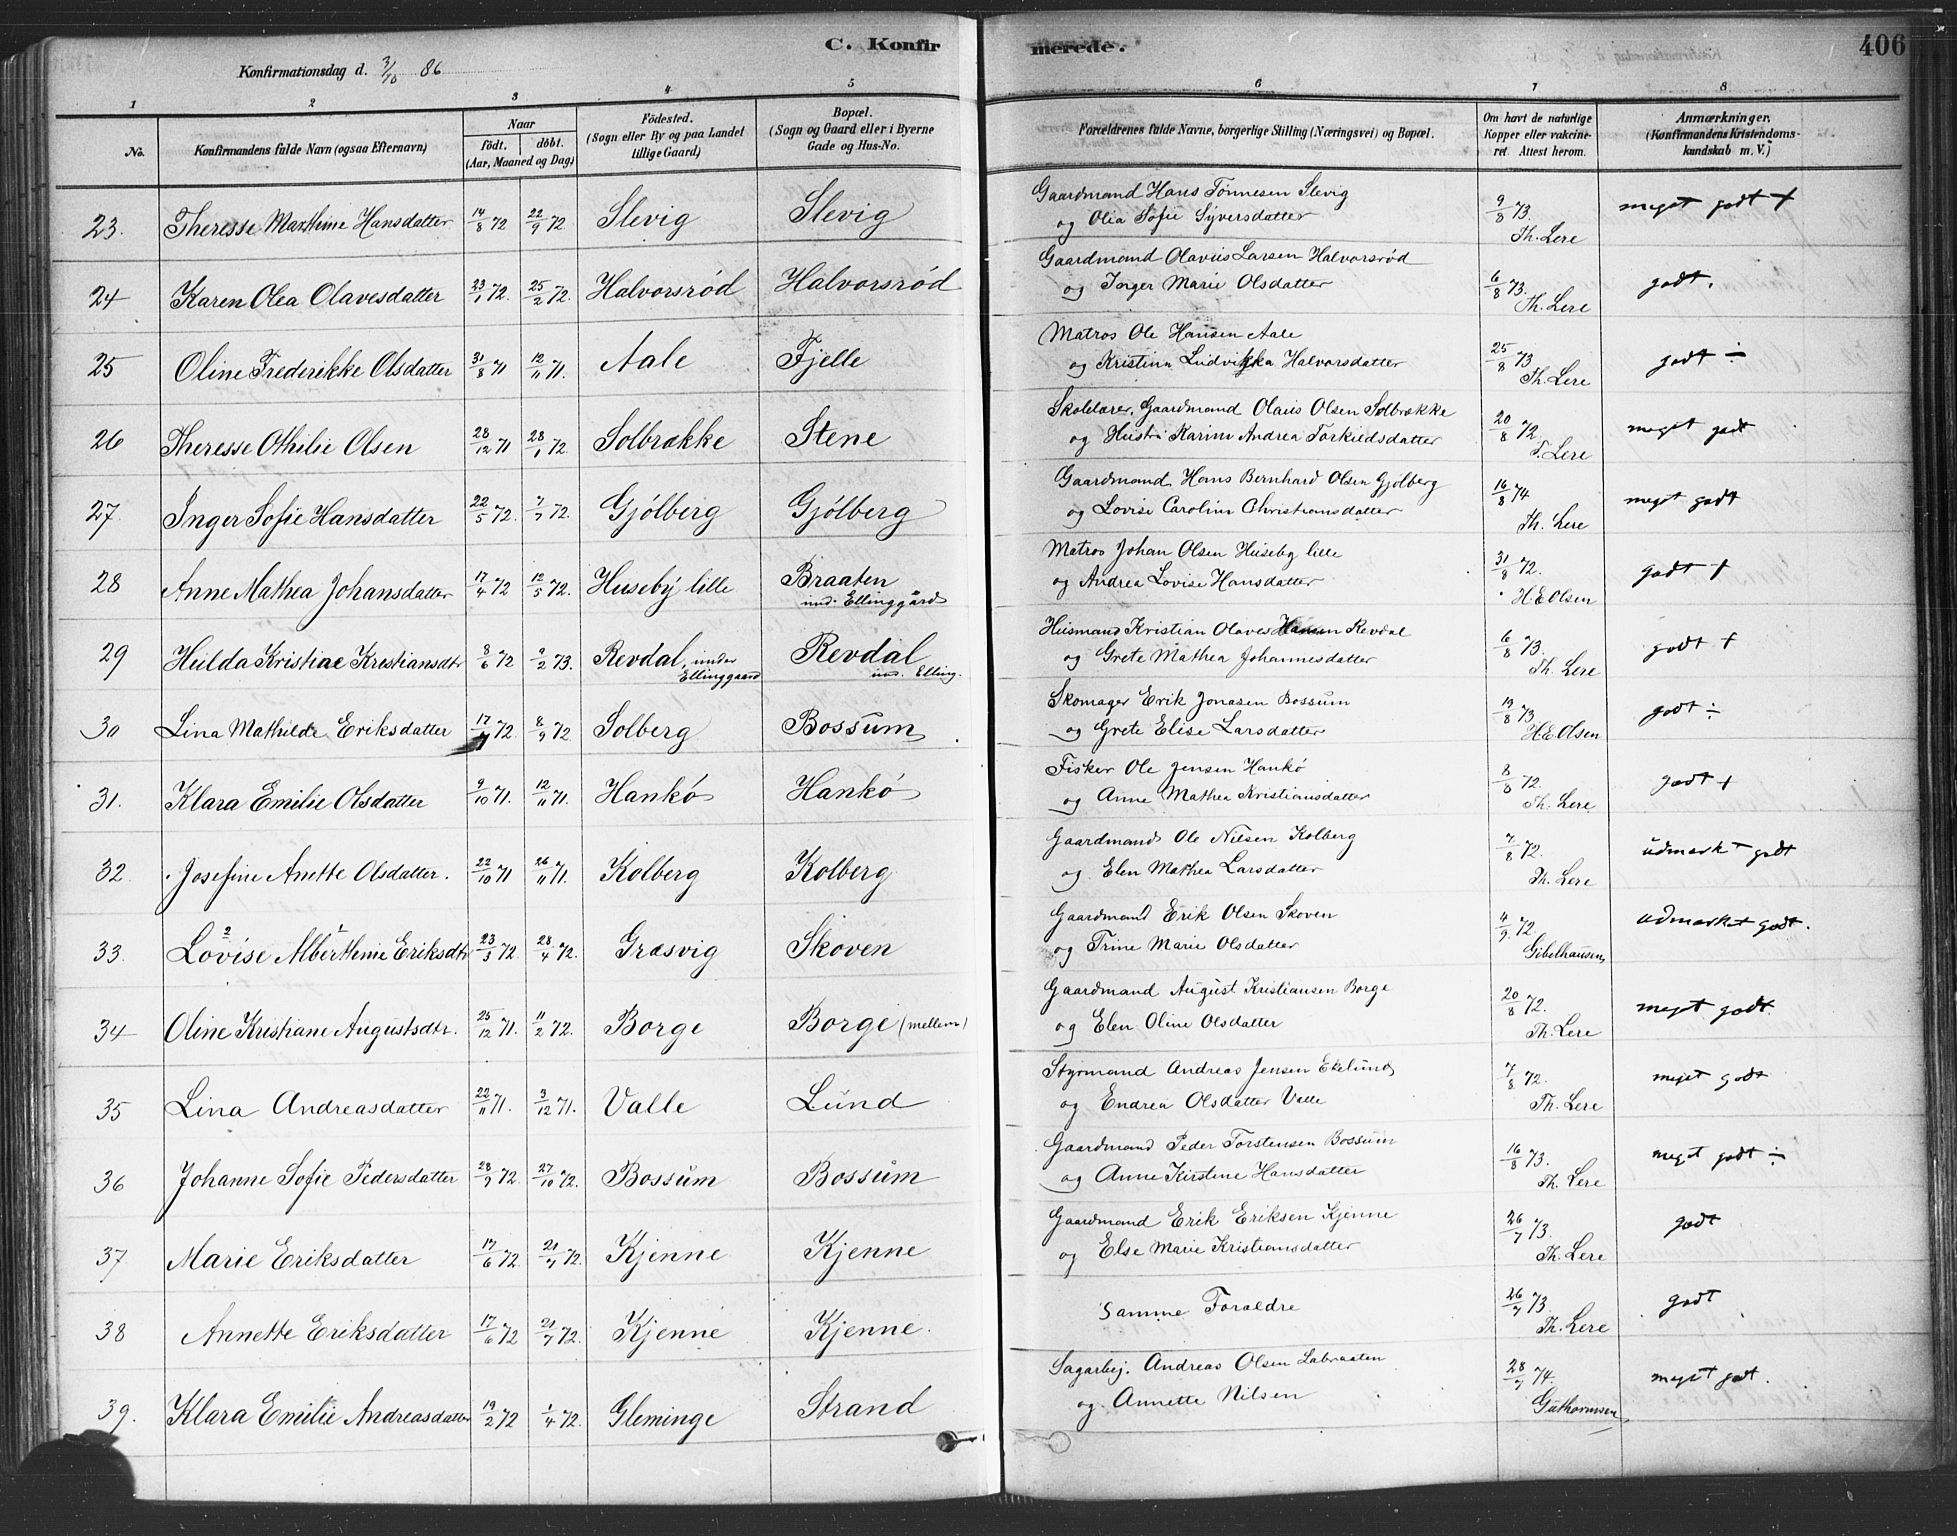 C. Konfirmerede. 406
Konfirmationsdag d. 3/10 86
1 2 3 4 5 6 7 8
No. Konfirmandens fulde Navn (ogsaa Efternavn) Naar födt. döbt. (Aar, Maaned og Dag) Födested. (Sogn eller By og paa Landet tillige Gaard) Bopæl. (Sogn og Gaard eller i Byerne Gade og Hus-No. Forældrenes fulde Navne, borgerlige Stilling (Næringsvei) og Bopæl. Om havt de naturlige Kopper eller vakcineret. Attest herom. Anmærkninger. (Konfirmandens Kristendomskundskab m. V.)
23. Theresse Marthine Hansdatter 14/8 72 22/9 72. Slevig Slevig Gaardmand Hans Tønnesen Slevig 9/8 73. meget godt +
og Olia Sofie Syversdatter Th. Lere
24 Karen Olea Olavesdatter 23/1 72. 25/2 72. Halvorsrød Halvorsrød Gaardmand Olavus Larsen Halvorsrød 6/8 73. godt.
og Inger Marie Olsdatter Th. Lere
25 Oline Frederikke Olsdatter 31/8 71 12/11 71. Aale Fjelle Matros Ole Hansen Aale 25/8 73. godt ÷
og Kristina Ludvikka Halvorsdatter Th. Lere
26 Theresse Othilie Olsen 28/12 71 28/1 72. Solbrække Stene Skolelærer, Gaardmand Olaus Olsen Solbrække 20/8 72. meget godt
og Hustr. Karine Andrea Torkildsdatter T. Lere
27. Inger Sofie Hansdatter 22/5 72. 7/7 72. Gjølberg Gjølberg Gaardmand Hans Bernhard Olsen Gjølberg 16/8 74 meget godt
og Lovise Caroline Christiansdatter Th. Lere
28 Anne Mathea Johansdatter 17/4 72 12/5 72. Huseby lille Braaten und. Ellinggård Matros Johan Olsen Huseby lille 31/8 72. godt +
og Andrea Lovise Hansdatter H.E Olsen
29 Hilda Kristiae Kristiansdtr 8/6 72 9/2 73. Revdal under Ellinggaard Revdal und. Elling. Husmand Kristian Olaves Hansen Revdal 6/8 73. godt +
og Grete Mathea Johannesdatter Th. Lere
30 Lina Mathilde Eriksdatter 17/7 72 8/9 72 Solberg Bossum Skomager Erik Jonasen Bossum 19/8 73 godt ÷
og Grete Elise Larsdatter H E Olsen
31. Klara Emilie Olsdatter 9/10 71. 12/11 71. Hankö Hankö Fisker Ole Jensen Hankö 8/8 72. godt +
og Anne Mathea Kristiansdatter Th. Lere
32. Josefine Anette Olsdatter. 22/10 71 26/11 71. Kolberg Kolberg Gaardmand Ole Nilsen Kolberg 7/8 72. udmærket godt
og Elen Mathea Larsdatter Th. Lere
33. Lovise Alberthine Eriksdtr 23/3 72. 28/4 72. Græsvig Skoven Gaardmand Erik Olsen Skoven 4/9. 72. udmærket godt.
og Trine Marie Olsdatter Gibelhausen
34 Oline Kristiane Augustsdtr. 25/12 71. 11/2 72. Borge Borge (mellem) Gaardmand August Kristiansen Borge 20/8 72. meget godt.
og Elen Oline Olsdatter Th. Lere
35 Lina Andreasdatter 22/11 71. 3/12 71. Valle Lund Styrmand Andreas Jensen Ekelund 7/8 72. meget godt
og Endrea Olsdatter Valle Th. Lere
36 Johanne Sofie Pedersdatter 28/9 72. 27/10 72. Bossum Bossum Gaardmand Peder Torstensen Bossum 16/8 73. meget godt ÷
og Anne Kirstine Hansdatter Th. Lere
37. Marie Eriksdatter 17/6 72. 21/7 72. Kjenne Kjenne Gaardmand Erik Eriksen Kjenne 26/7 73. godt
og Else Marie Kristiansdatter Th. Lere
38 Annette Eriksdatter 17/6 72 21/7 72. Kjenne Kjenne. Samme Forældre 26/7 73. godt
Th. Lere
39. Klara Emilie Andreasdatter 19/2 72 1/4 72. Gleminge Strand Sagarbej. Andreas Olsen Labraaten 28/7 74. meget godt.
og Annette Nilsen Guthormsen